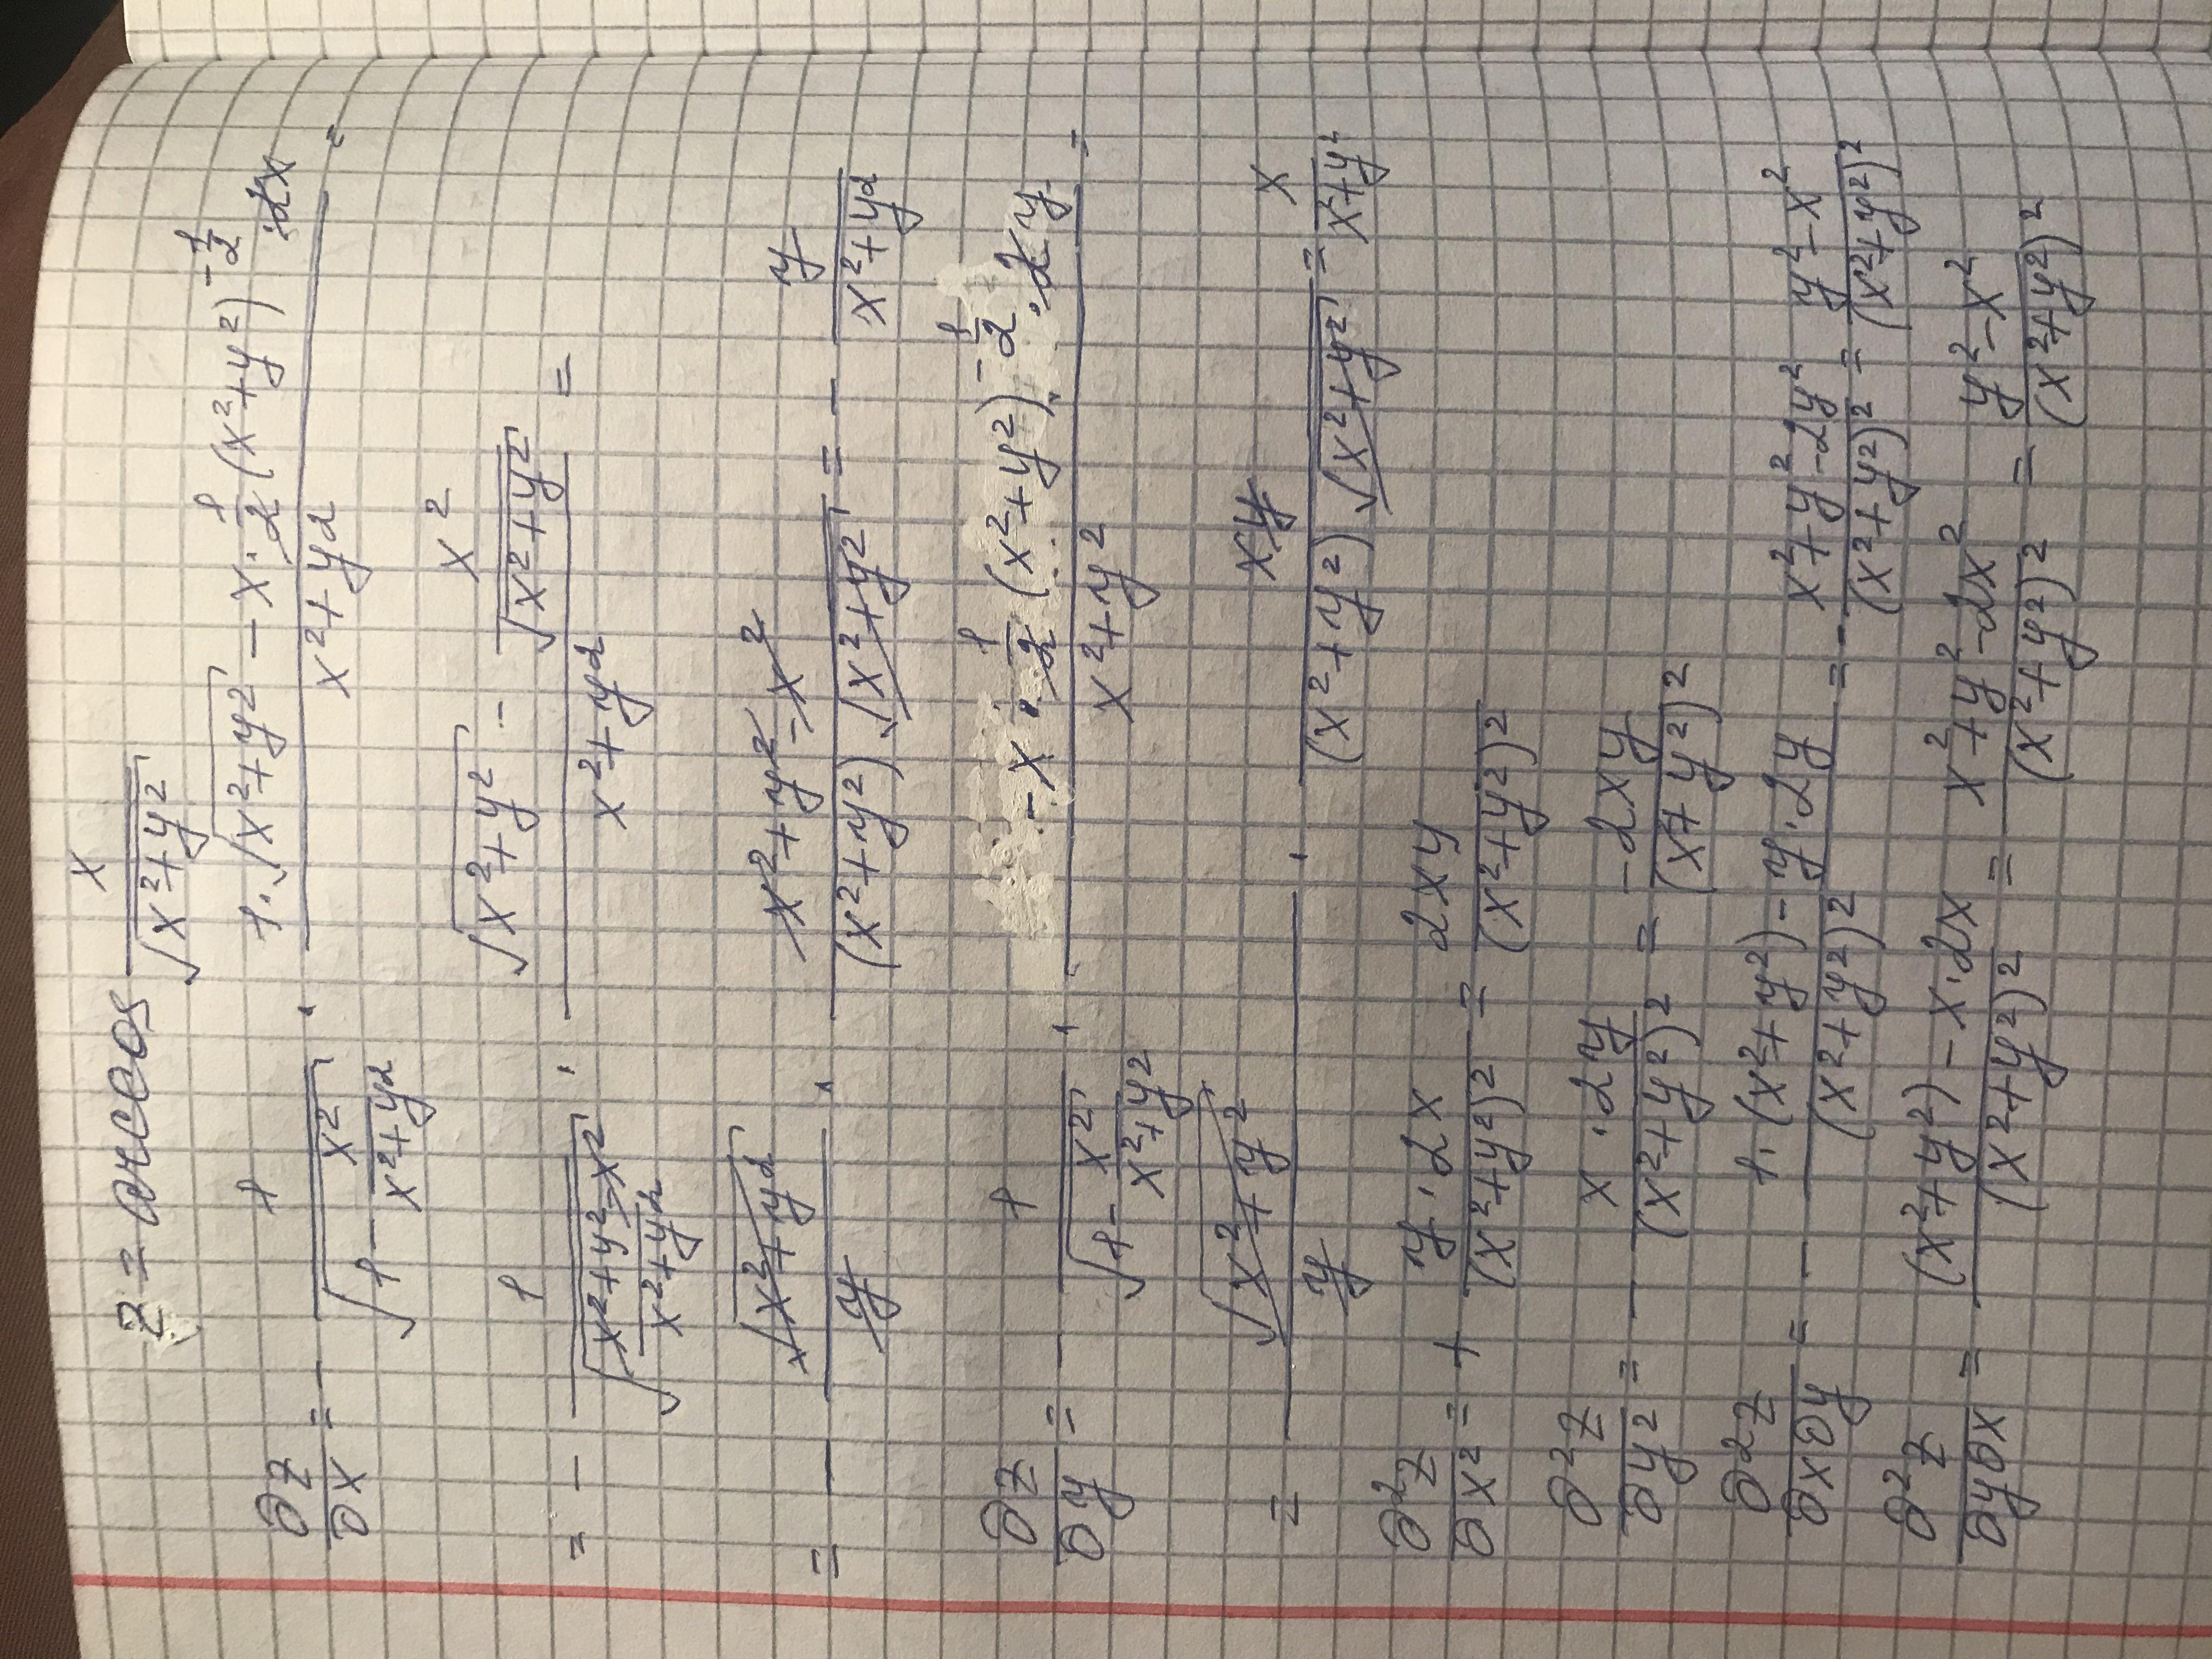 z = arccos x/√(x²+y²)
∂z/∂x = - 1/√(1 - x²/(x²+y²)) · (1·√(x²+y²) - x·1/2(x²+y²)^(-1/2)·2x)/(x²+y²) =
= - 1/√((x²+y²-x²)/(x²+y²)) · (√(x²+y²) - x²/√(x²+y²))/(x²+y²) =
= - √(x²+y²)/y · (x²+y²-x²)/((x²+y²)√(x²+y²)) = - y/(x²+y²)
∂z/∂y = - 1/√(1 - x²/(x²+y²)) · (-x·1/2·(x²+y²)^(-1/2)·2y)/(x²+y²) =
= √(x²+y²)/y · xy/((x²+y²)√(x²+y²)) = x/(x²+y²)
∂²z/∂x² = + y·2x/(x²+y²)² = 2xy/(x²+y²)²
∂²z/∂y² = - x·2y/(x²+y²)² = -2xy/(x²+y²)²
∂²z/∂x∂y = - (1·(x²+y²)-y·2y)/(x²+y²)² = - (x²+y²-2y²)/(x²+y²)² = (y²-x²)/(x²+y²)²
∂²z/∂y∂x = ((x²+y²)-x·2x)/(x²+y²)² = (x²+y²-2x²)/(x²+y²)² = (y²-x²)/(x²+y²)²